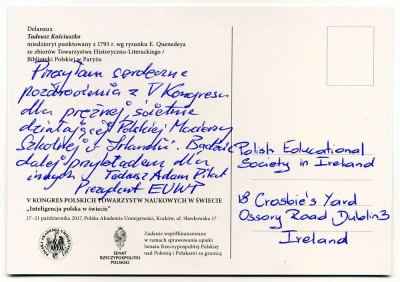 Delanaux
Tadeusz Kościuszko
miedzioryt punktowany z 1793 r. wg rysunku E. Quenedeya
ze zbiorów Towarzystwa Historyczno-Literackiego /
Biblioteki Polskiej w Paryżu
Przesyłam serdeczne
pozdrowienia z V Kongresu
dla prężnej, świetnie
działającej Polskiej Macierzy
Szkolnej w Irlandii. Bądźcie
dalej przykładem dla
innych, Tadeusz Adam Pilat
Prezydent EUWP
Polish Educational
Society in Ireland
18 Crosbie's Yard
Ossory Road, Dublin 3
Ireland
V KONGRES POLSKICH TOWARZYSTW NAUKOWYCH W ŚWIECIE
„Inteligencja polska w świecie”
17–21 października 2017, Polska Akademia Umiejętności, Kraków, ul. Sławkowska 17
SENAT
RZECZYPOSPOLITEJ
POLSKIEJ
Zadanie współfinansowane
w ramach sprawowania opieki
Senatu Rzeczypospolitej Polskiej
nad Polonią i Polakami za granicą